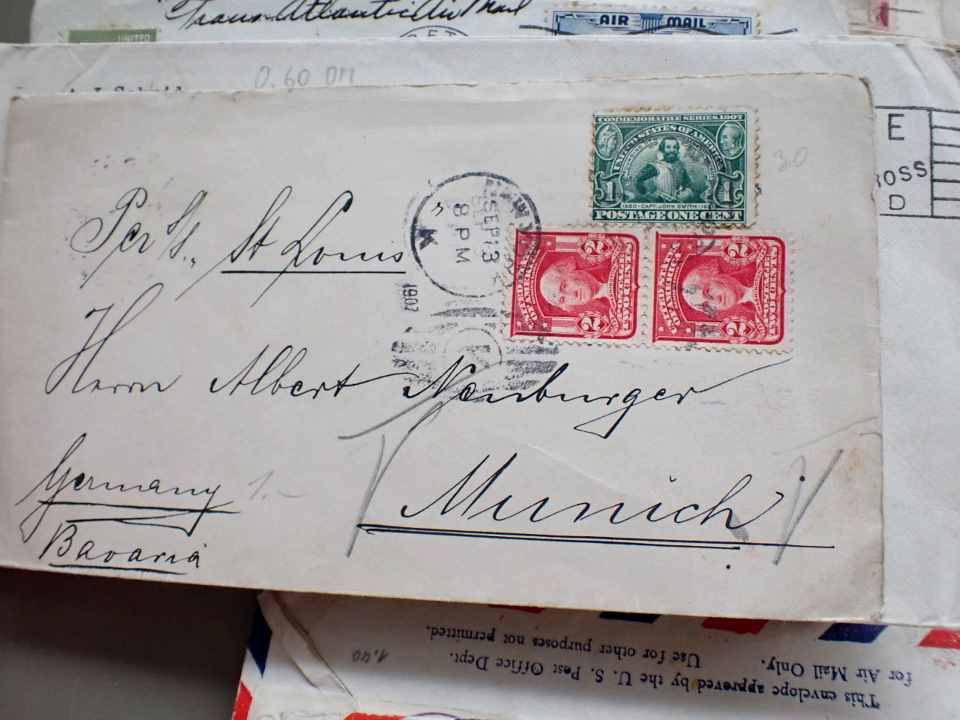 Trans-Atlantic Air Mail
UNITED
AIR MAIL
0.60 DM
E
OSS
D
30
COMMEMORATIVE SERIES 1907
UNITED STATES OF AMERICA
1 1
1580 CAPT. JOHN SMITH
POSTAGE ONE CENT
SEP 13
8 PM
1907
2 2
TWO CENTS
2 2
TWO CENTS
Per S/S. St Louis
Herrn Albert Neuburger
Munich
Germany
1.-
Bavaria
1.40
This envelope approved by the U. S. Post Office Dept.
for Air Mail Only. Use for other purposes not permitted.